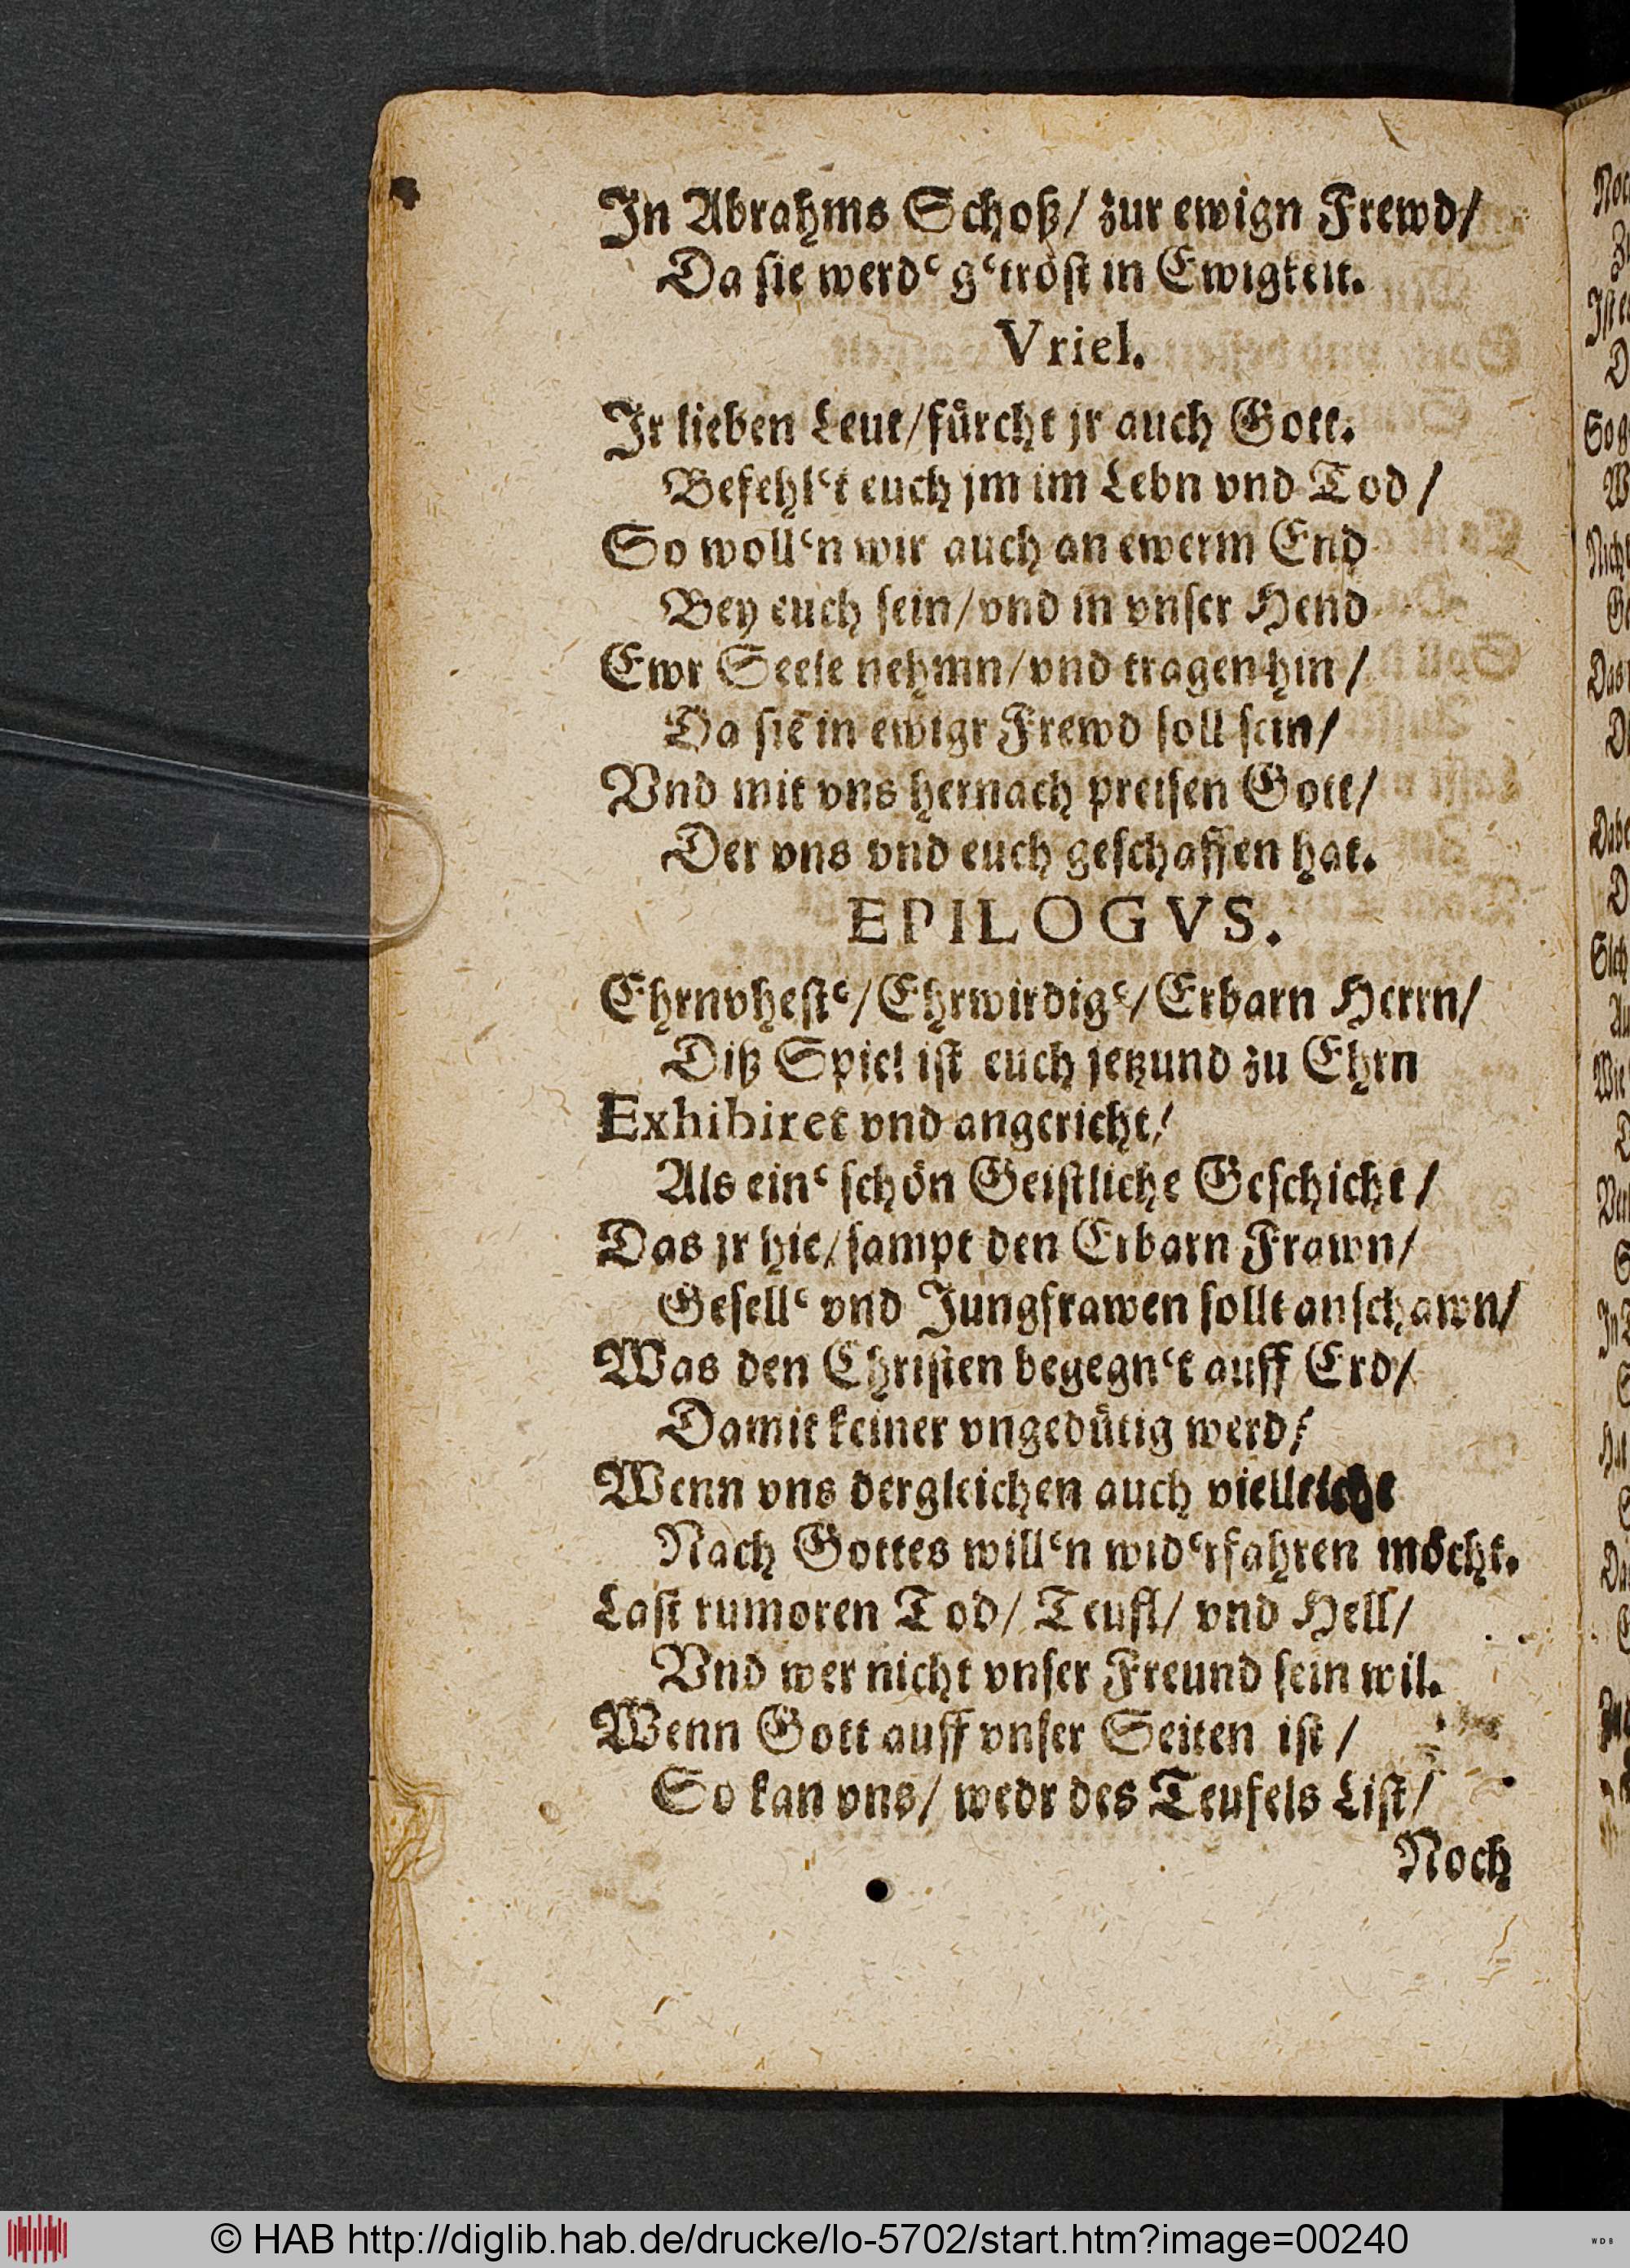 In Abrahms Schoß/ zur ewign Frewd/
Da sie werdʿ gʿtröst in Ewigkeit.
Vriel.
Ir lieben Leut/ fürcht jr auch Gott.
Befehlʿt euch jm im Lebn vnd Tod/
So wollʿn wir auch an ewerm End
Bey euch sein/ vnd in vnser Hend
Ewr Seele nehmn/ vnd tragen hin/
Da sie in ewigr Frewd soll sein/
Vnd mit vns hernach preisen Gott/
Der vns vnd euch geschaffen hat.
EPILOGVS.
Ehrnvhestʿ/ Ehrwirdigʿ/ Erbarn Herrn/
Diß Spiel ist euch jetzund zu Ehrn
Exhibiret vnd angericht/
Als einʿ schön Geistliche Geschicht/
Das jr hie/ sampt den Erbarn Frawn/
Gesellʿ vnd Jungfrawen sollt anschawn/
Was den Christen begegnʿt auff Erd/
Damit keiner vngedütig werd/
Wenn vns dergleichen auch vielleicht
Nach Gottes willʿn widʿrfahren möcht.
Last rumoren Tod/ Teufl/ vnd Hell/
Vnd wer nicht vnser Freund sein wil.
Wenn Gott auff vnser Seiten ist/
So kan vns/ wedr des Teufels List/
Noch
© HAB http://diglib.hab.de/drucke/lo-5702/start.htm?image=00240
WDB